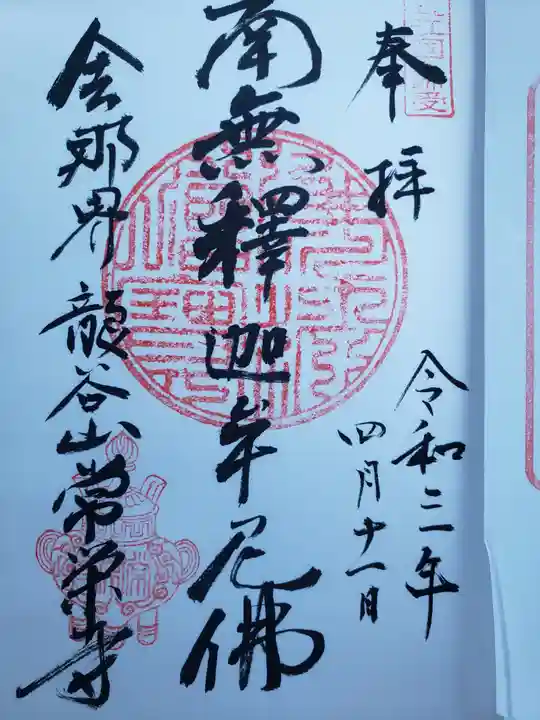 奉拝
令和三年
四月十一日
南無釋迦牟尼佛
舎那界龍谷山常栄寺